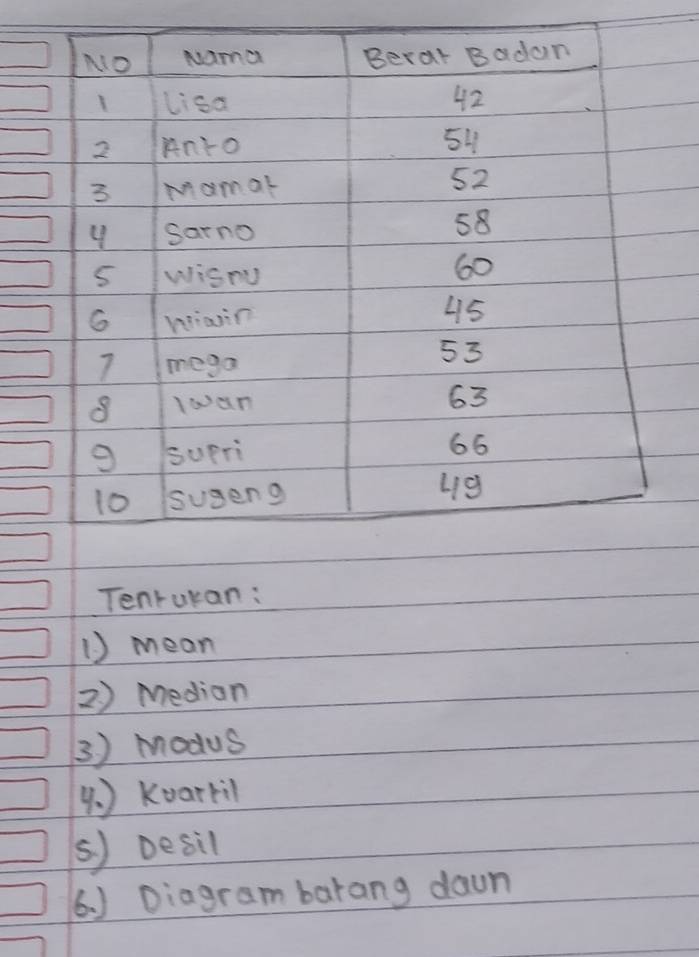 No Nama Berat Badan
1 Lisa 42
2 Anto 54
3 Mamat 52
4 Sarno 58
5 Wisnu 60
6 Wiwin 45
7 mega 53
8 Iwan 63
9 Supri 66
10 Sugeng 49
Tentukan:
1.) Mean
2.) Median
3) Modus
4.) Kuartil
5.) Desil
6.) Diagram batang daun